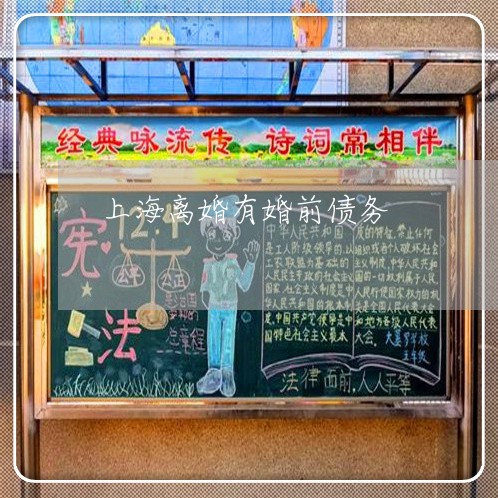 经典咏流传 诗词常相伴
上海离婚有婚前债务
宪法
12.4
公平
公正
总章程
中华人民共和国
是工人阶级领导的,以
工农联盟为基础的
人民民主专政的社会主义
国家,社会主义制度是中
华人民共和国的根本制
度,中国共产党领导是中
国特色社会主义最本
质的特征,禁止任何
组织或者个人破坏社会
主义制度,中华人民共和
国的一切权利属于人民,
人民行使国家权力的机
关是全国人民代表大会
和地方各级人民代表
大会。
五年级
法律面前,人人平等